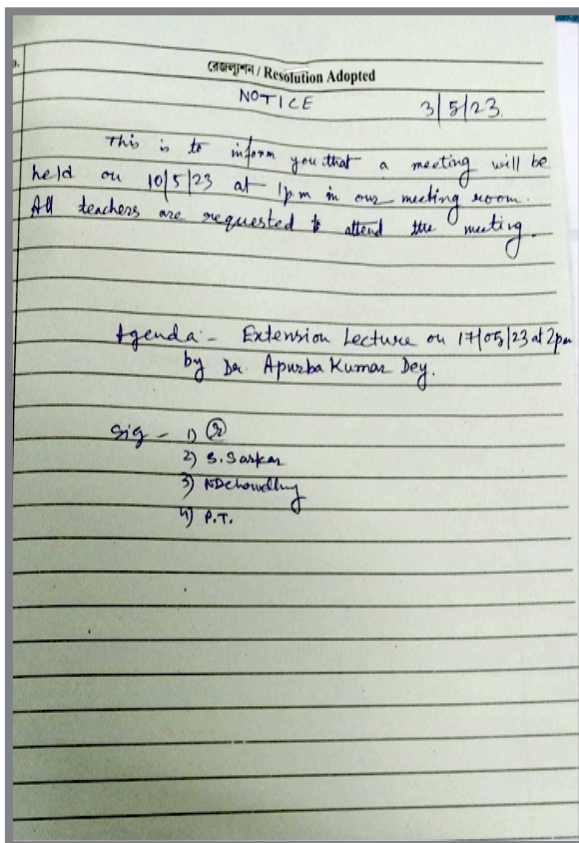 রেজল্যুশন / Resolution Adopted
NOTICE 3/5/23.
This is to inform you that a meeting will be
held on 10/5/23 at 1pm in our meeting room.
All teachers are requested to attend the meeting.
Agenda:- Extension Lecture on 17/05/23 at 2pm
by Dr. Apurba Kumar Dey.
Sig - 1)
2) S. Sarkar
3) NDChowdhury
4) P.T.